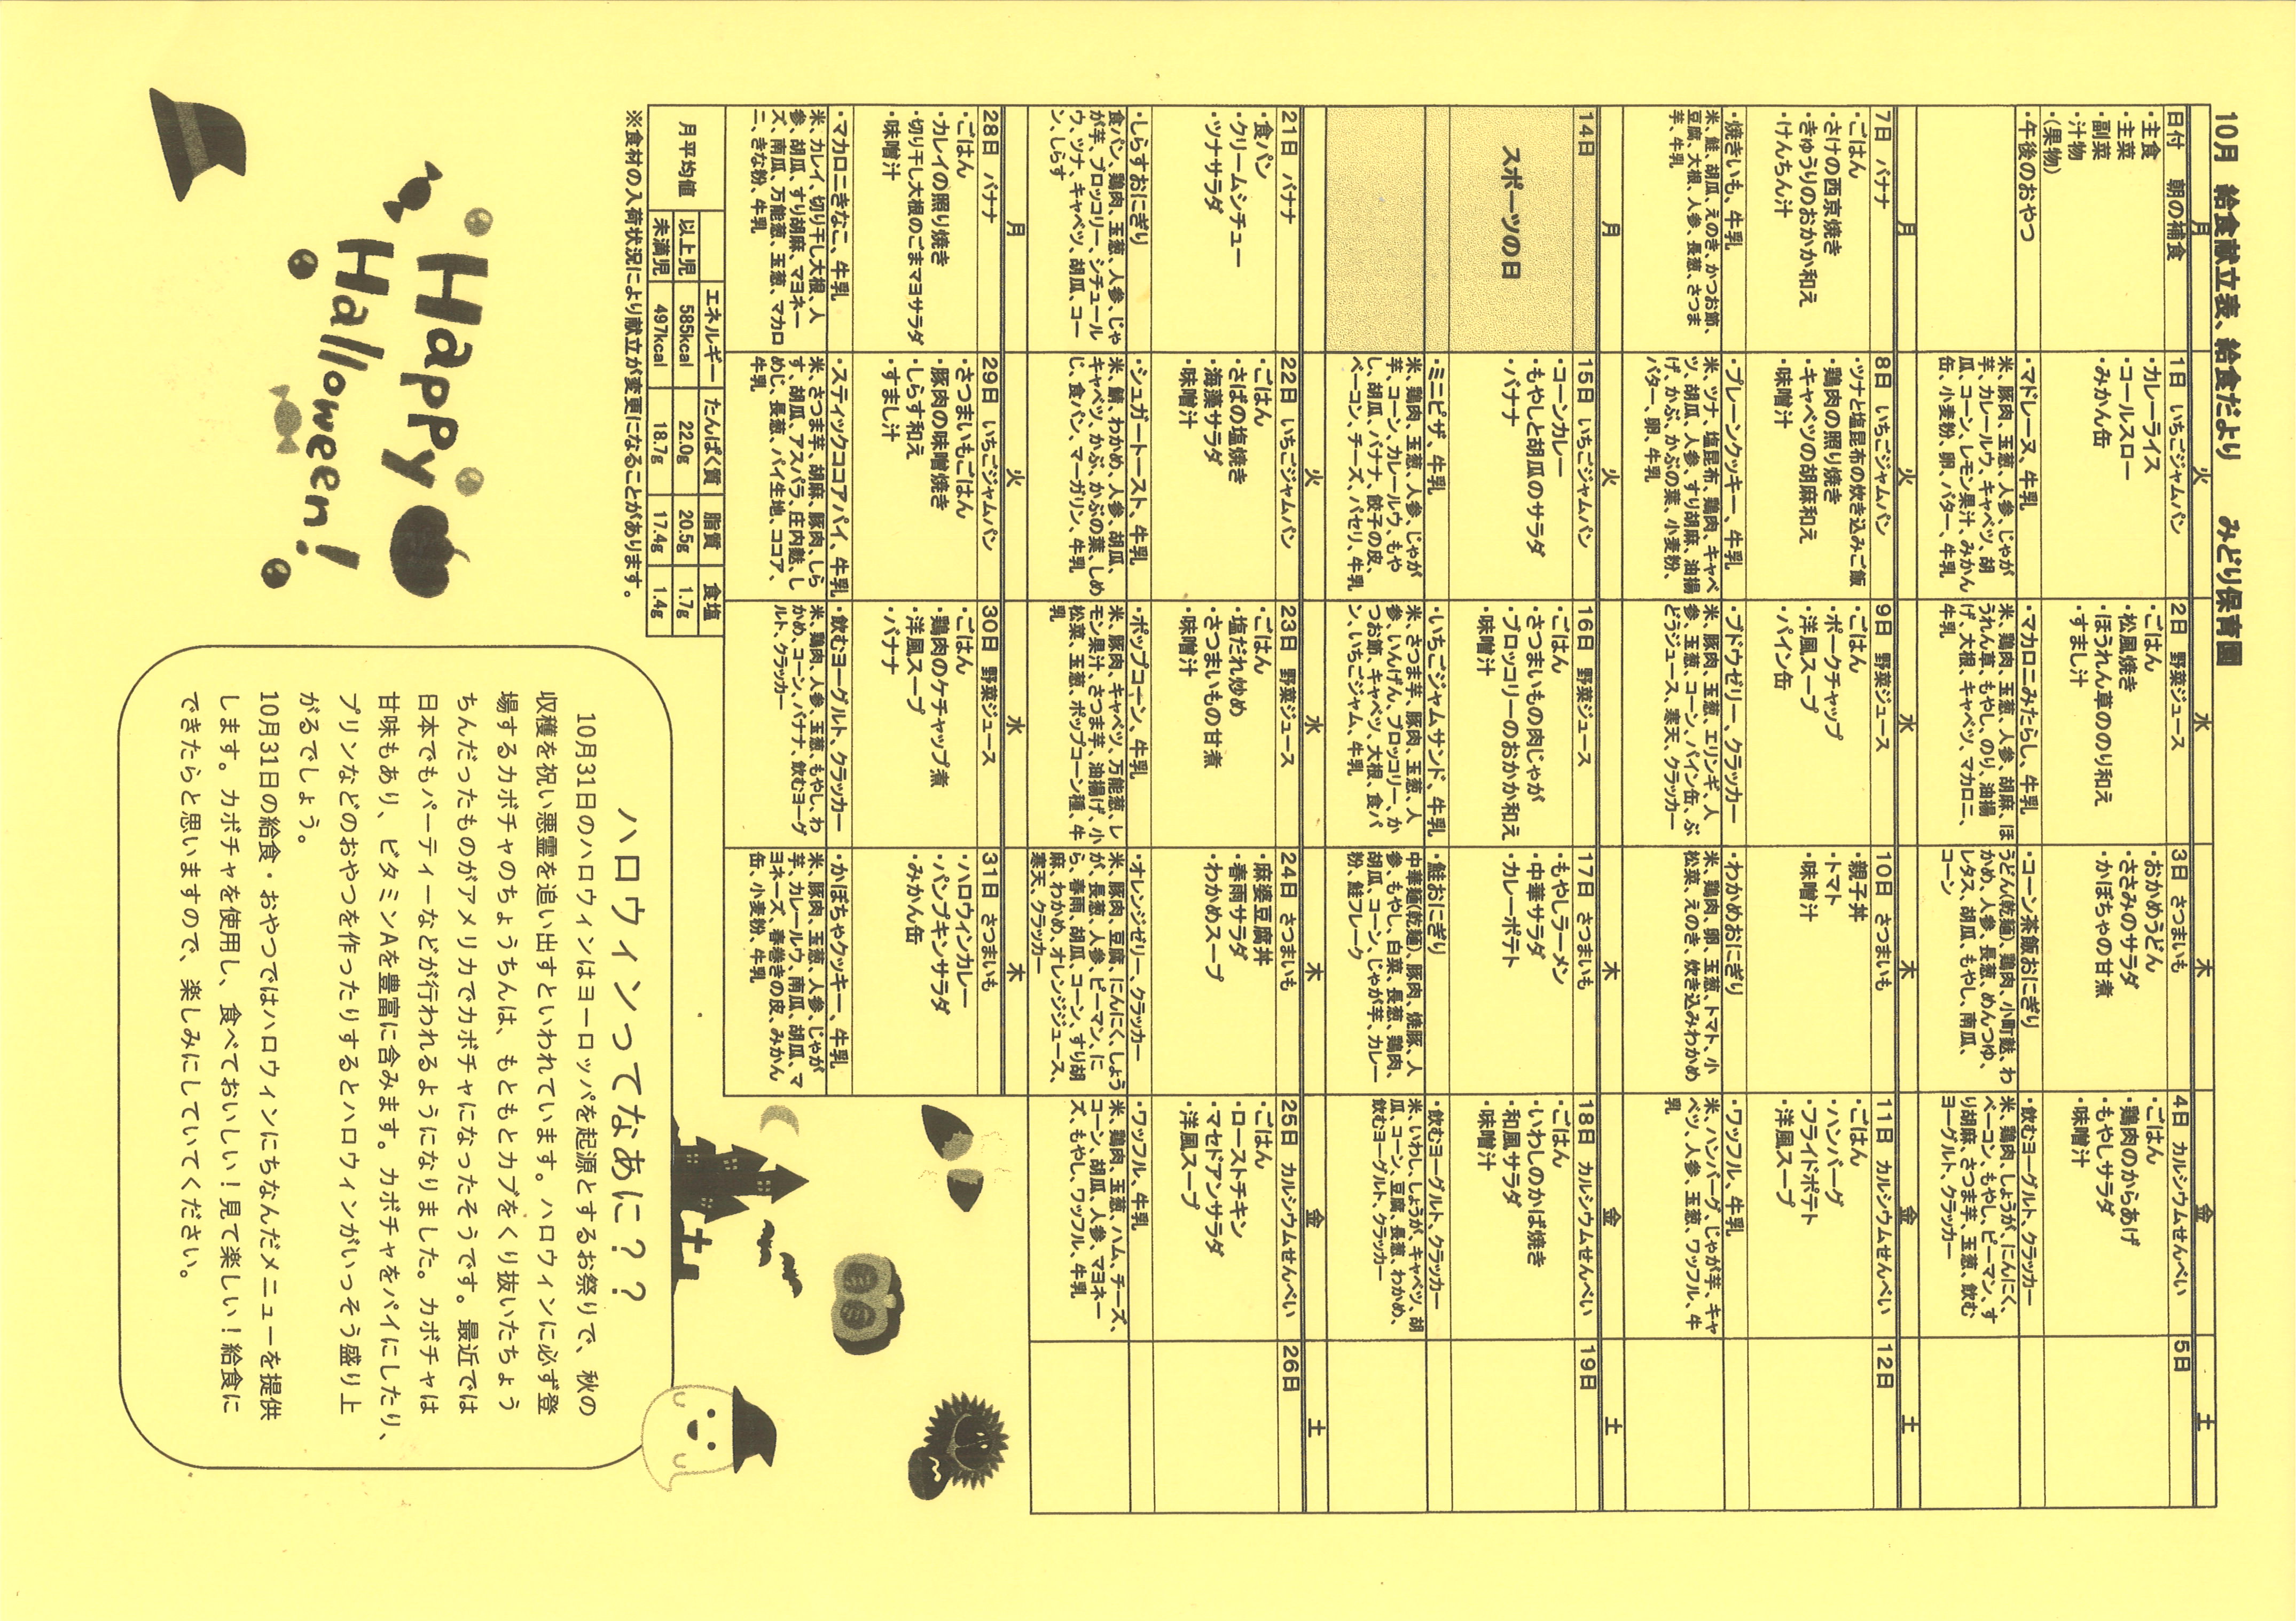 10月 給食献立表、給食だより みどり保育園
月 火 水 木 金 土
日付 朝の補食
・主食
・主菜
・副菜
・汁物
・(果物)
・午後のおやつ
1日 いちごジャムパン
・カレーライス
・コールスロー
・みかん缶
・マドレーヌ、牛乳
米、豚肉、玉葱、人参、じゃが
芋、カレールウ、キャベツ、胡
瓜、コーン、レモン果汁、みかん
缶、小麦粉、卵、バター、牛乳
2日 野菜ジュース
・ごはん
・松風焼き
・ほうれん草ののり和え
・すまし汁
・マカロニみたらし、牛乳
米、鶏肉、玉葱、人参、胡麻、ほ
うれん草、もやし、のり、油揚
げ、大根、キャベツ、マカロニ、
牛乳
3日 さつまいも
・おかめうどん
・ささみのサラダ
・かぼちゃの甘煮
・コーン茶飯おにぎり
うどん(乾麺)、鶏肉、小町麩、わ
かめ、人参、長葱、めんつゆ、
レタス、胡瓜、もやし、南瓜、
コーン
4日 カルシウムせんべい
・ごはん
・鶏肉のからあげ
・もやしサラダ
・味噌汁
・飲むヨーグルト、クラッカー
米、鶏肉、しょうが、にんにく、
ベーコン、もやし、ピーマン、す
り胡麻、さつま芋、玉葱、飲む
ヨーグルト、クラッカー
5日
月 火 水 木 金 土
7日 バナナ
・ごはん
・さけの西京焼き
・きゅうりのおかか和え
・けんちん汁
・焼きいも、牛乳
米、鮭、胡瓜、えのき、かつお節、
豆腐、大根、人参、長葱、さつま
芋、牛乳
8日 いちごジャムパン
・ツナと塩昆布の炊き込みご飯
・鶏肉の照り焼き
・キャベツの胡麻和え
・味噌汁
・プレーンクッキー、牛乳
米、ツナ、塩昆布、鶏肉、キャベ
ツ、胡瓜、人参、すり胡麻、油揚
げ、かぶ、かぶの葉、小麦粉、
バター、卵、牛乳
9日 野菜ジュース
・ごはん
・ポークチャップ
・洋風スープ
・パイン缶
・ブドウゼリー、クラッカー
米、豚肉、玉葱、エリンギ、人
参、玉葱、コーン、パイン缶、ぶ
どうジュース、寒天、クラッカー
10日 さつまいも
・親子丼
・トマト
・味噌汁
・わかめおにぎり
米、鶏肉、卵、玉葱、トマト、小
松菜、えのき、炊き込みわかめ
11日 カルシウムせんべい
・ごはん
・ハンバーグ
・フライドポテト
・洋風スープ
・ワッフル、牛乳
米、ハンバーグ、じゃが芋、キャ
ベツ、人参、玉葱、ワッフル、牛
乳
12日
月 火 水 木 金 土
14日
スポーツの日
15日 いちごジャムパン
・コーンカレー
・もやしと胡瓜のサラダ
・バナナ
・ミニピザ、牛乳
米、鶏肉、玉葱、人参、じゃが
芋、コーン、カレールウ、もや
し、胡瓜、バナナ、餃子の皮、
ベーコン、チーズ、パセリ、牛乳
16日 野菜ジュース
・ごはん
・さつまいもの肉じゃが
・ブロッコリーのおかか和え
・味噌汁
・いちごジャムサンド、牛乳
米、さつま芋、豚肉、玉葱、人
参、いんげん、ブロッコリー、か
つお節、キャベツ、大根、食パ
ン、いちごジャム、牛乳
17日 さつまいも
・もやしラーメン
・中華サラダ
・カレーポテト
・鮭おにぎり
中華麺(乾麺)、豚肉、焼豚、人
参、もやし、白菜、長葱、鶏肉、
胡瓜、コーン、じゃが芋、カレー
粉、鮭フレーク
18日 カルシウムせんべい
・ごはん
・いわしのかば焼き
・和風サラダ
・味噌汁
・飲むヨーグルト、クラッカー
米、いわし、しょうが、キャベツ、胡
瓜、コーン、豆腐、長葱、わかめ、
飲むヨーグルト、クラッカー
19日
月 火 水 木 金 土
21日 バナナ
・食パン
・クリームシチュー
・ツナサラダ
・しらすおにぎり
食パン、鶏肉、玉葱、人参、じゃ
が芋、ブロッコリー、シチュール
ウ、ツナ、キャベツ、胡瓜、コー
ン、しらす
22日 いちごジャムパン
・ごはん
・さばの塩焼き
・海藻サラダ
・味噌汁
・シュガートースト、牛乳
米、鯖、わかめ、人参、胡瓜、
キャベツ、かぶ、かぶの葉、しめ
じ、食パン、マーガリン、牛乳
23日 野菜ジュース
・ごはん
・塩だれ炒め
・さつまいもの甘煮
・味噌汁
・ポップコーン、牛乳
米、豚肉、キャベツ、万能葱、レ
モン果汁、さつま芋、油揚げ、小
松菜、玉葱、ポップコーン種、牛
乳
24日 さつまいも
・麻婆豆腐丼
・春雨サラダ
・わかめスープ
・オレンジゼリー、クラッカー
米、豚肉、豆腐、にんにく、しょう
が、長葱、人参、ピーマン、に
ら、春雨、胡瓜、コーン、すり胡
麻、わかめ、オレンジジュース、
寒天、クラッカー
25日 カルシウムせんべい
・ごはん
・ローストチキン
・マセドアンサラダ
・洋風スープ
・ワッフル、牛乳
米、鶏肉、玉葱、ハム、チーズ、
コーン、胡瓜、人参、マヨネー
ズ、もやし、ワッフル、牛乳
26日
月 火 水 木
28日 バナナ
・ごはん
・カレイの照り焼き
・切り干し大根のごまマヨサラダ
・味噌汁
・マカロニきなこ、牛乳
米、カレイ、切り干し大根、人
参、胡瓜、すり胡麻、マヨネー
ズ、南瓜、万能葱、玉葱、マカロ
ニ、きな粉、牛乳
29日 いちごジャムパン
・さつまいもごはん
・豚肉の味噌焼き
・しらす和え
・すまし汁
・スティックココアパイ、牛乳
米、さつま芋、胡麻、豚肉、しら
す、胡瓜、アスパラ、庄内麩、し
めじ、長葱、パイ生地、ココア、
牛乳
30日 野菜ジュース
・ごはん
・鶏肉のケチャップ煮
・洋風スープ
・バナナ
・飲むヨーグルト、クラッカー
米、鶏肉、人参、玉葱、もやし、わ
かめ、コーン、バナナ、飲むヨーグ
ルト、クラッカー
31日 さつまいも
・ハロウィンカレー
・パンプキンサラダ
・みかん缶
・かぼちゃクッキー、牛乳
米、豚肉、玉葱、人参、じゃが
芋、カレールウ、南瓜、胡瓜、マ
ヨネーズ、春巻きの皮、みかん
缶、小麦粉、牛乳
月平均値 エネルギー たんぱく質 脂質 食塩
以上児 585kcal 22.0g 20.5g 1.7g
未満児 497kcal 18.7g 17.4g 1.4g
※食材の入荷状況により献立が変更になることがあります。
Happy
Halloween!
ハロウィンってなあに？？
10月31日のハロウィンはヨーロッパを起源とするお祭りで、秋の
収穫を祝い悪霊を追い出すといわれています。ハロウィンに必ず登
場するカボチャのちょうちんは、もともとカブをくり抜いたちょう
ちんだったものがアメリカでカボチャになったそうです。最近では
日本でもパーティーなどが行われるようになりました。カボチャは
甘味もあり、ビタミンAを豊富に含みます。カボチャをパイにしたり、
プリンなどのおやつを作ったりするとハロウィンがいっそう盛り上
がるでしょう。
10月31日の給食・おやつではハロウィンにちなんだメニューを提供
します。カボチャを使用し、食べておいしい！見て楽しい！給食に
できたらと思いますので、楽しみにしていてください。